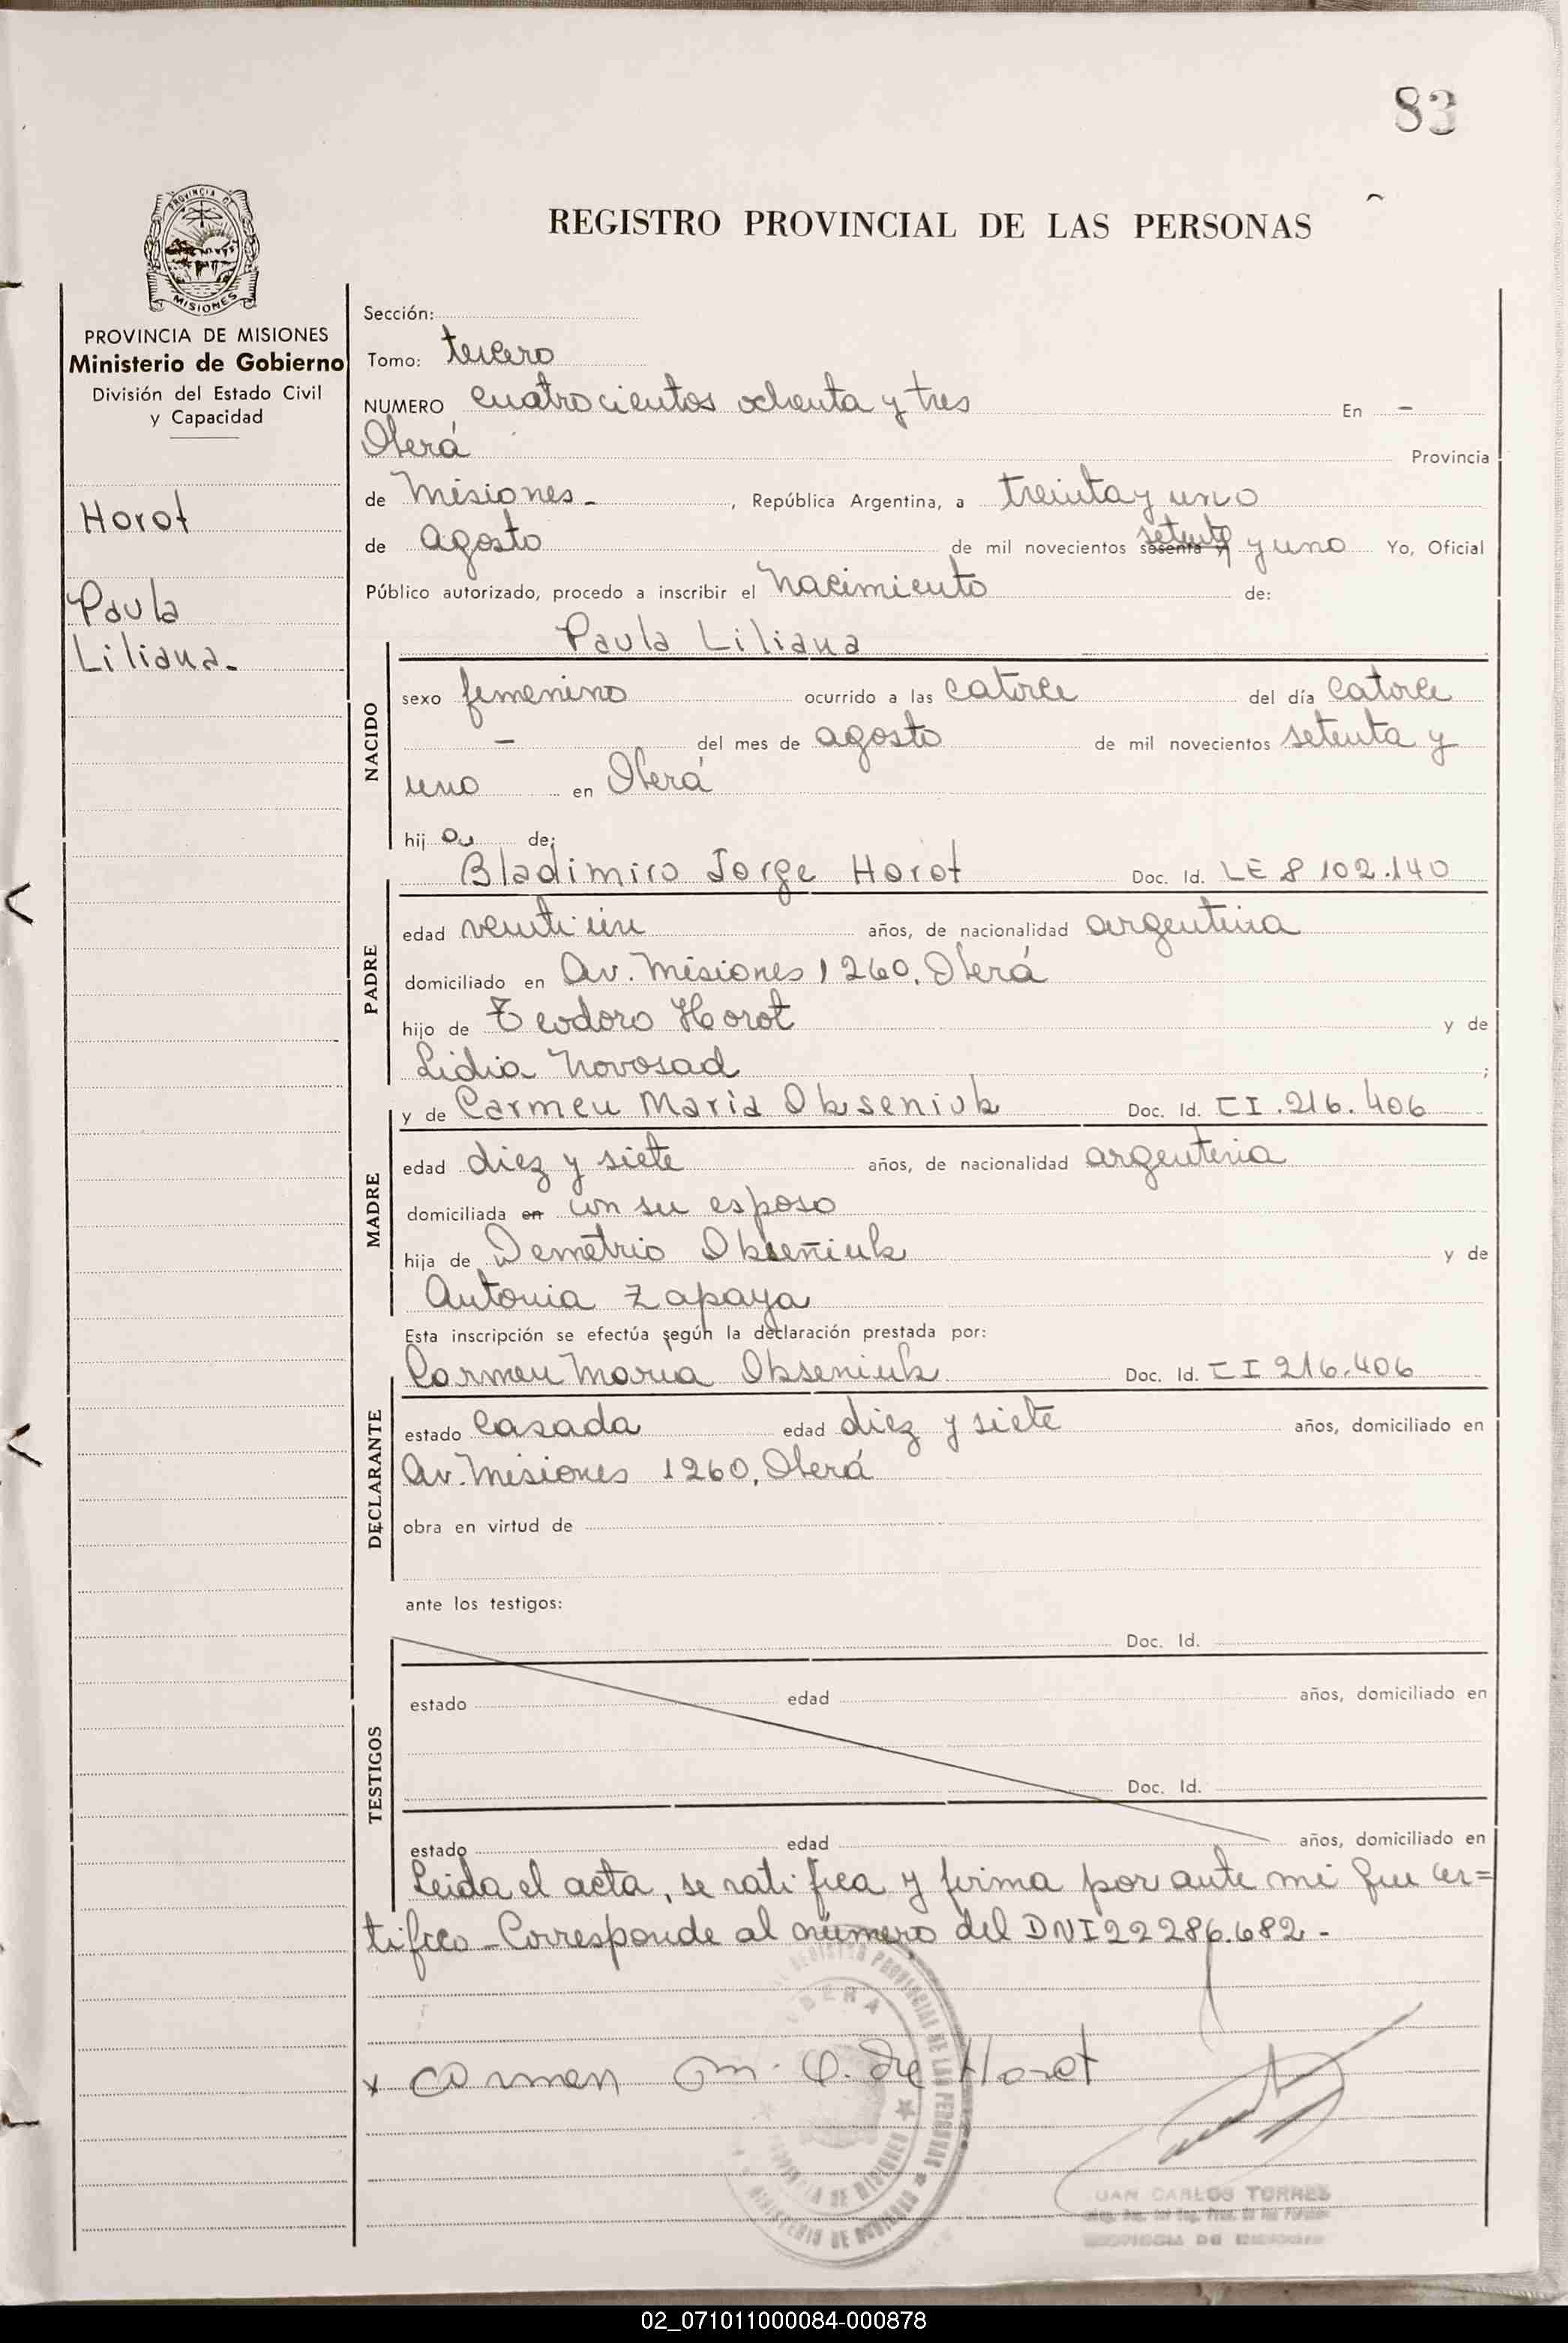 83
REGISTRO PROVINCIAL DE LAS PERSONAS
PROVINCIA DE MISIONES
MISIONES
PROVINCIA DE MISIONES
Ministerio de Gobierno
División del Estado Civil
y Capacidad
Horot
Paula
Liliana.
Sección:
Tomo: tercero
NUMERO cuatrocientos ochenta y tres En -
Oberá Provincia
de Misiones - , República Argentina, a treinta y uno
de agosto de mil novecientos sesenta y setenta y uno Yo, Oficial
Público autorizado, procedo a inscribir el nacimiento de:
Paula Liliana
NACIDO
sexo femenino ocurrido a las catorce del día catorce
- del mes de agosto de mil novecientos setenta y
uno en Oberá
hij a de;
PADRE
Bladimiro Jorge Horot Doc. Id. LE 8 102.140
edad veinti ún años, de nacionalidad argentina
domiciliado en Av. Misiones 1260, Oberá
hijo de Teodoro Horot y de
Lidia Novosad ;
MADRE
y de Carmen Maria Okseniuk Doc. Id. CI.216.406
edad diez y siete años, de nacionalidad argentina
domiciliada en con su esposo
hija de Demetrio Okseniuk y de
Antonia Zapaya
Esta inscripción se efectúa según la declaración prestada por:
DECLARANTE
Carmen Maria Okseniuk Doc. Id. CI 216.406
estado casada edad diez y siete años, domiciliado en
Av. Misiones 1260, Oberá
obra en virtud de
ante los testigos:
TESTIGOS
Doc. Id.
estado edad años, domiciliado en
Doc. Id.
estado edad años, domiciliado en
Leida el acta, se ratifica y firma por ante mi que cer=
tifico - Corresponde al número del DNI 22286.682 -
x Carmen m. O. de Horot
REGISTRO PROVINCIAL DE LAS PERSONAS
OBERA
PROVINCIA DE MISIONES
MINISTERIO DE GOBIERNO
JUAN CARLOS TORRES
PROVINCIA DE MISIONES
02_071011000084-000878